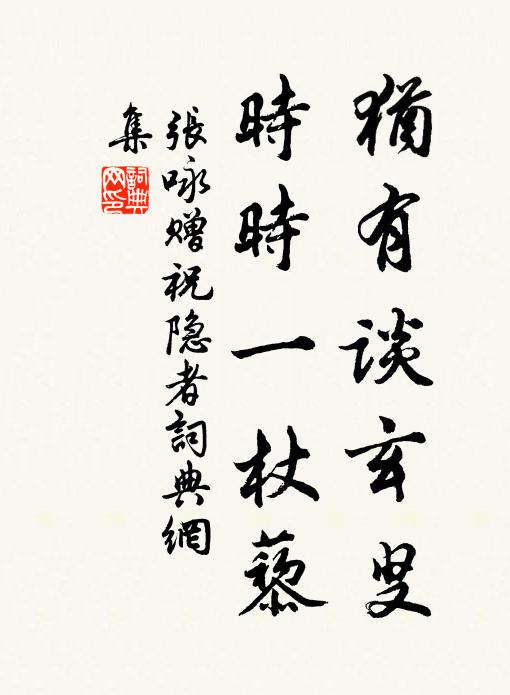 猶有談玄叟
時時一杖藜
張咏赠祝隐者詞典網
集
詞典網印